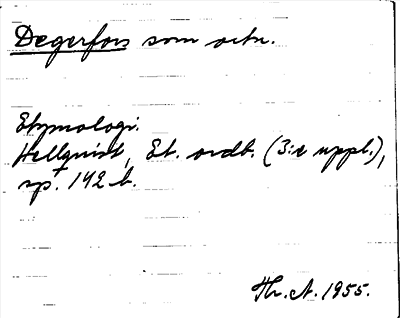 Degerfors som ortn.
Etymologi.
Hellquist, Et. ordb. (3:e uppl.),
sp. 142 b.
Th. A. 1955.